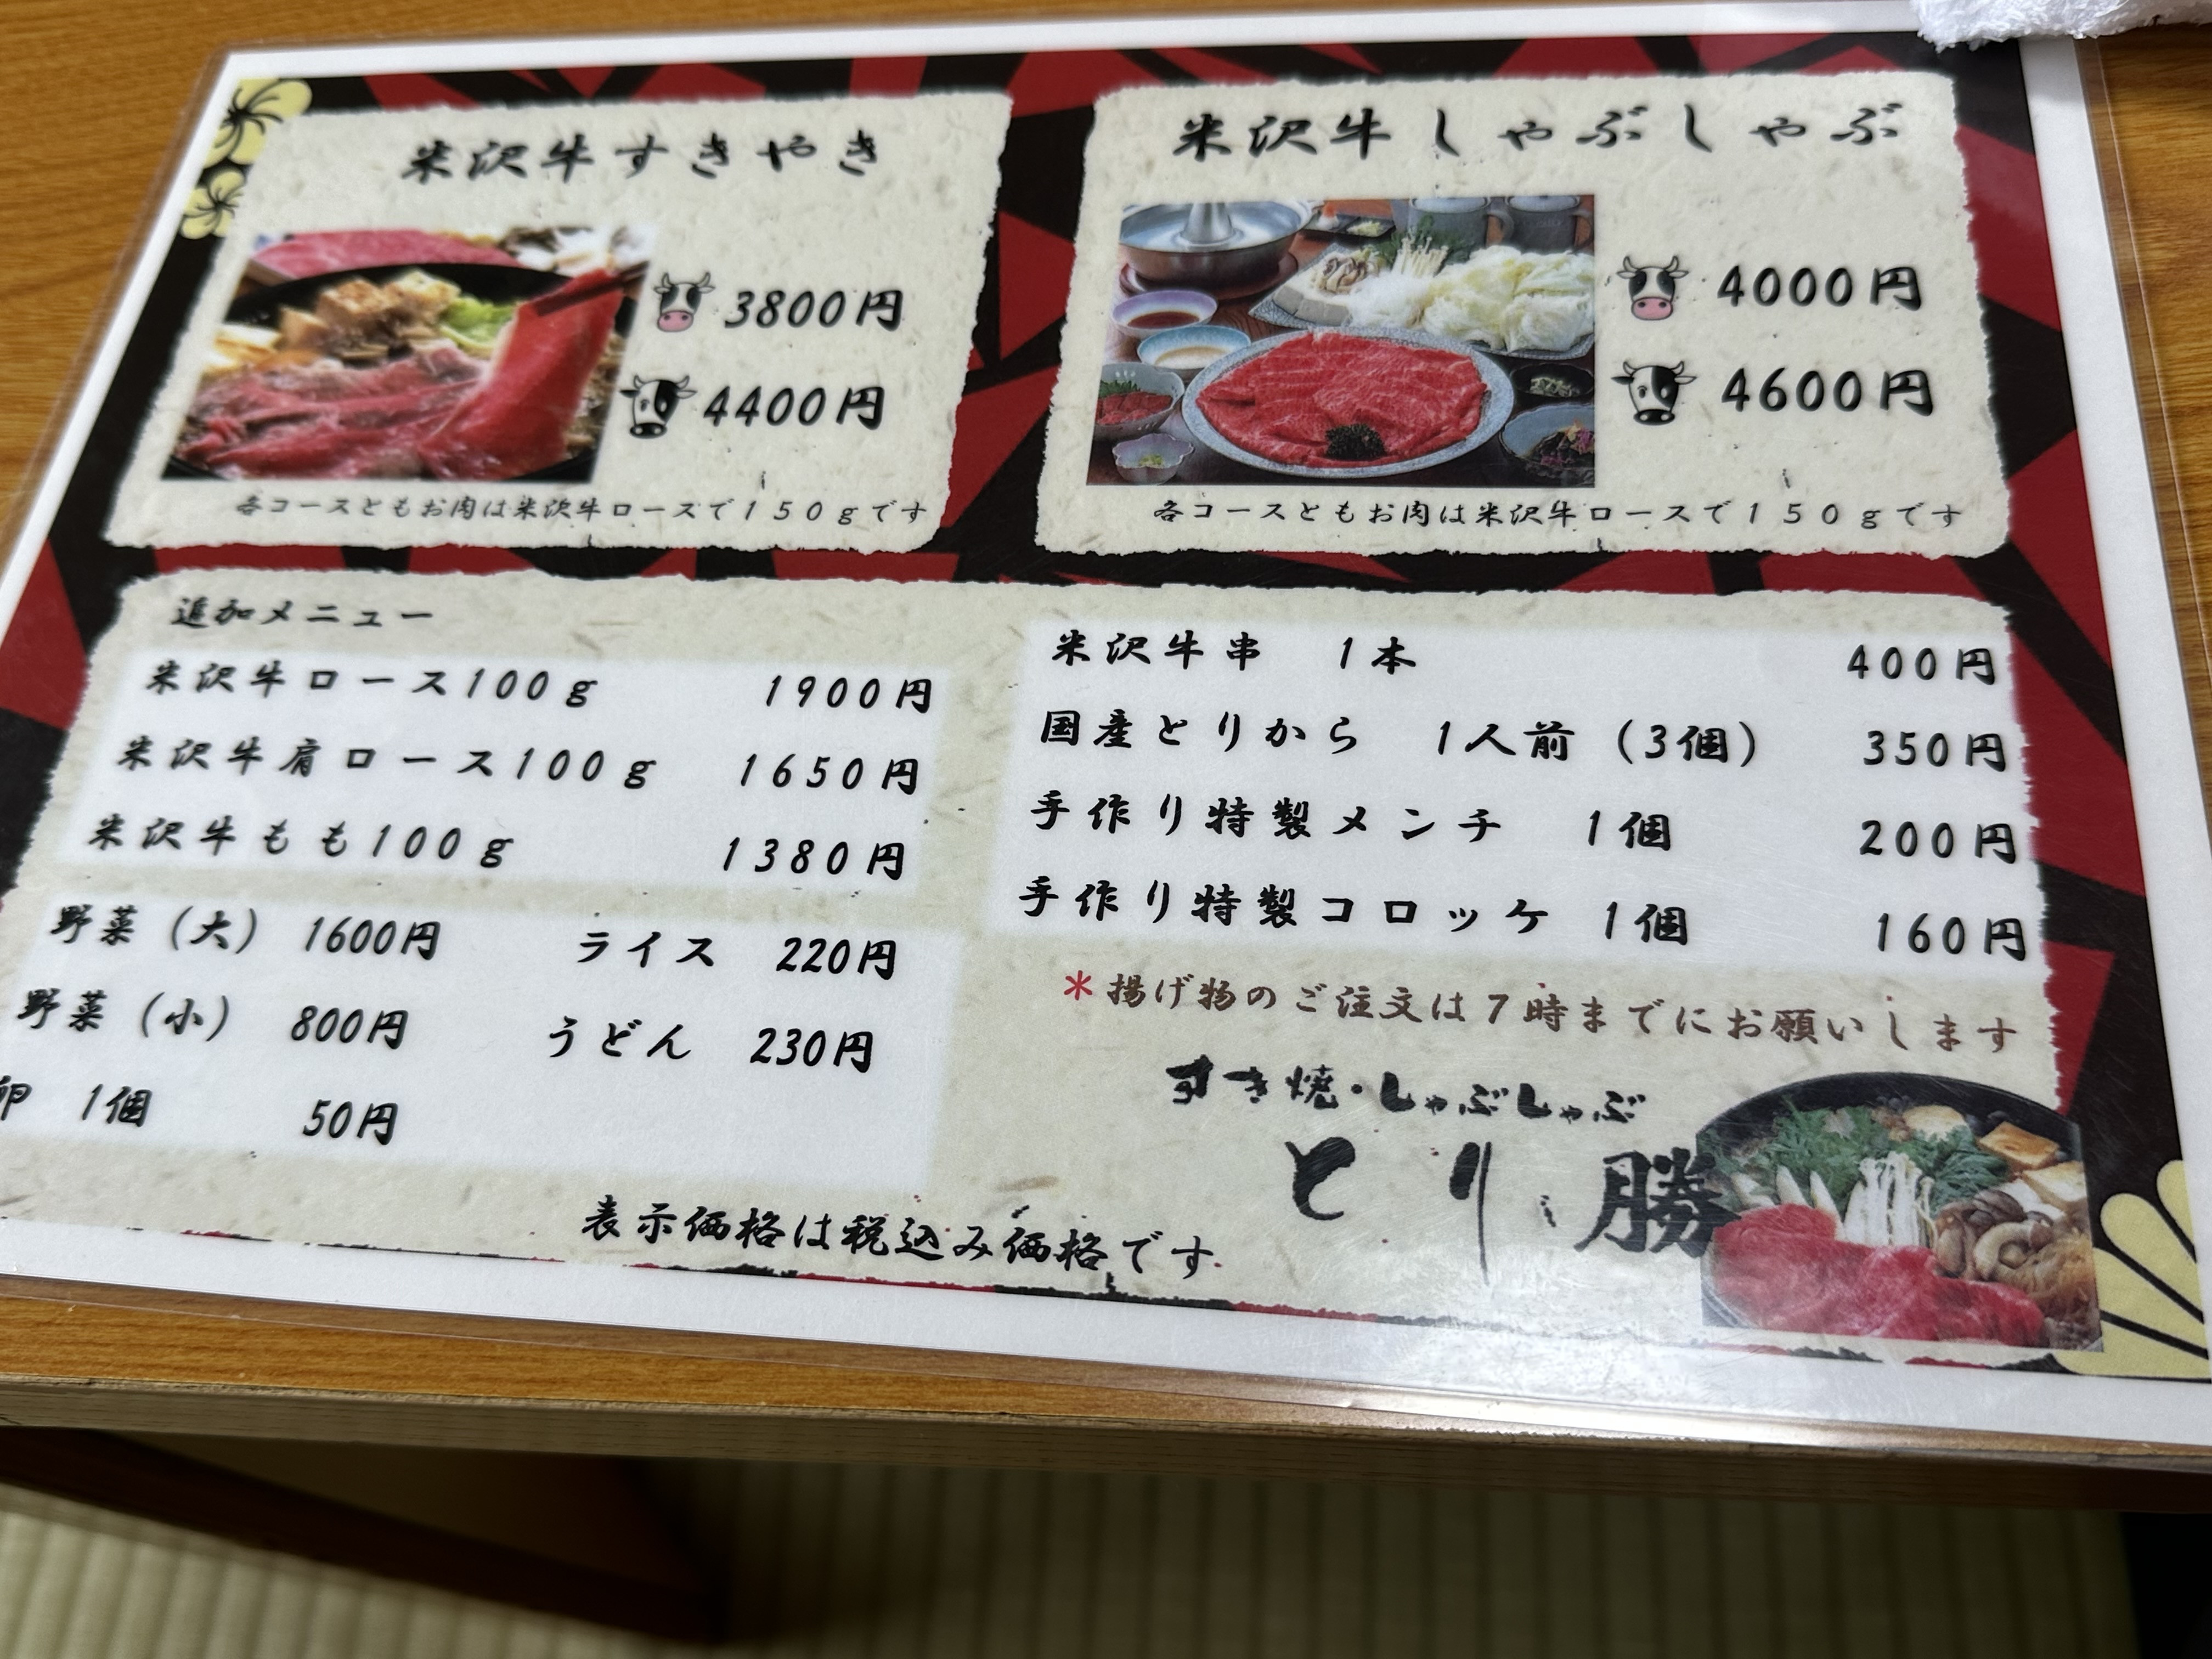 米沢牛すきやき
3800円
4400円
各コースともお肉は米沢牛ロースで150gです
米沢牛しゃぶしゃぶ
4000円
4600円
各コースともお肉は米沢牛ロースで150gです
追加メニュー
米沢牛ロース100g 1900円
米沢牛肩ロース100g 1650円
米沢牛もも100g 1380円
野菜（大） 1600円 ライス 220円
野菜（小） 800円 うどん 230円
卵 1個 50円
米沢牛串 1本 400円
国産とりから 1人前（3個） 350円
手作り特製メンチ 1個 200円
手作り特製コロッケ 1個 160円
*揚げ物のご注文は7時までにお願いします
すき焼・しゃぶしゃぶ
とり勝
表示価格は税込み価格です